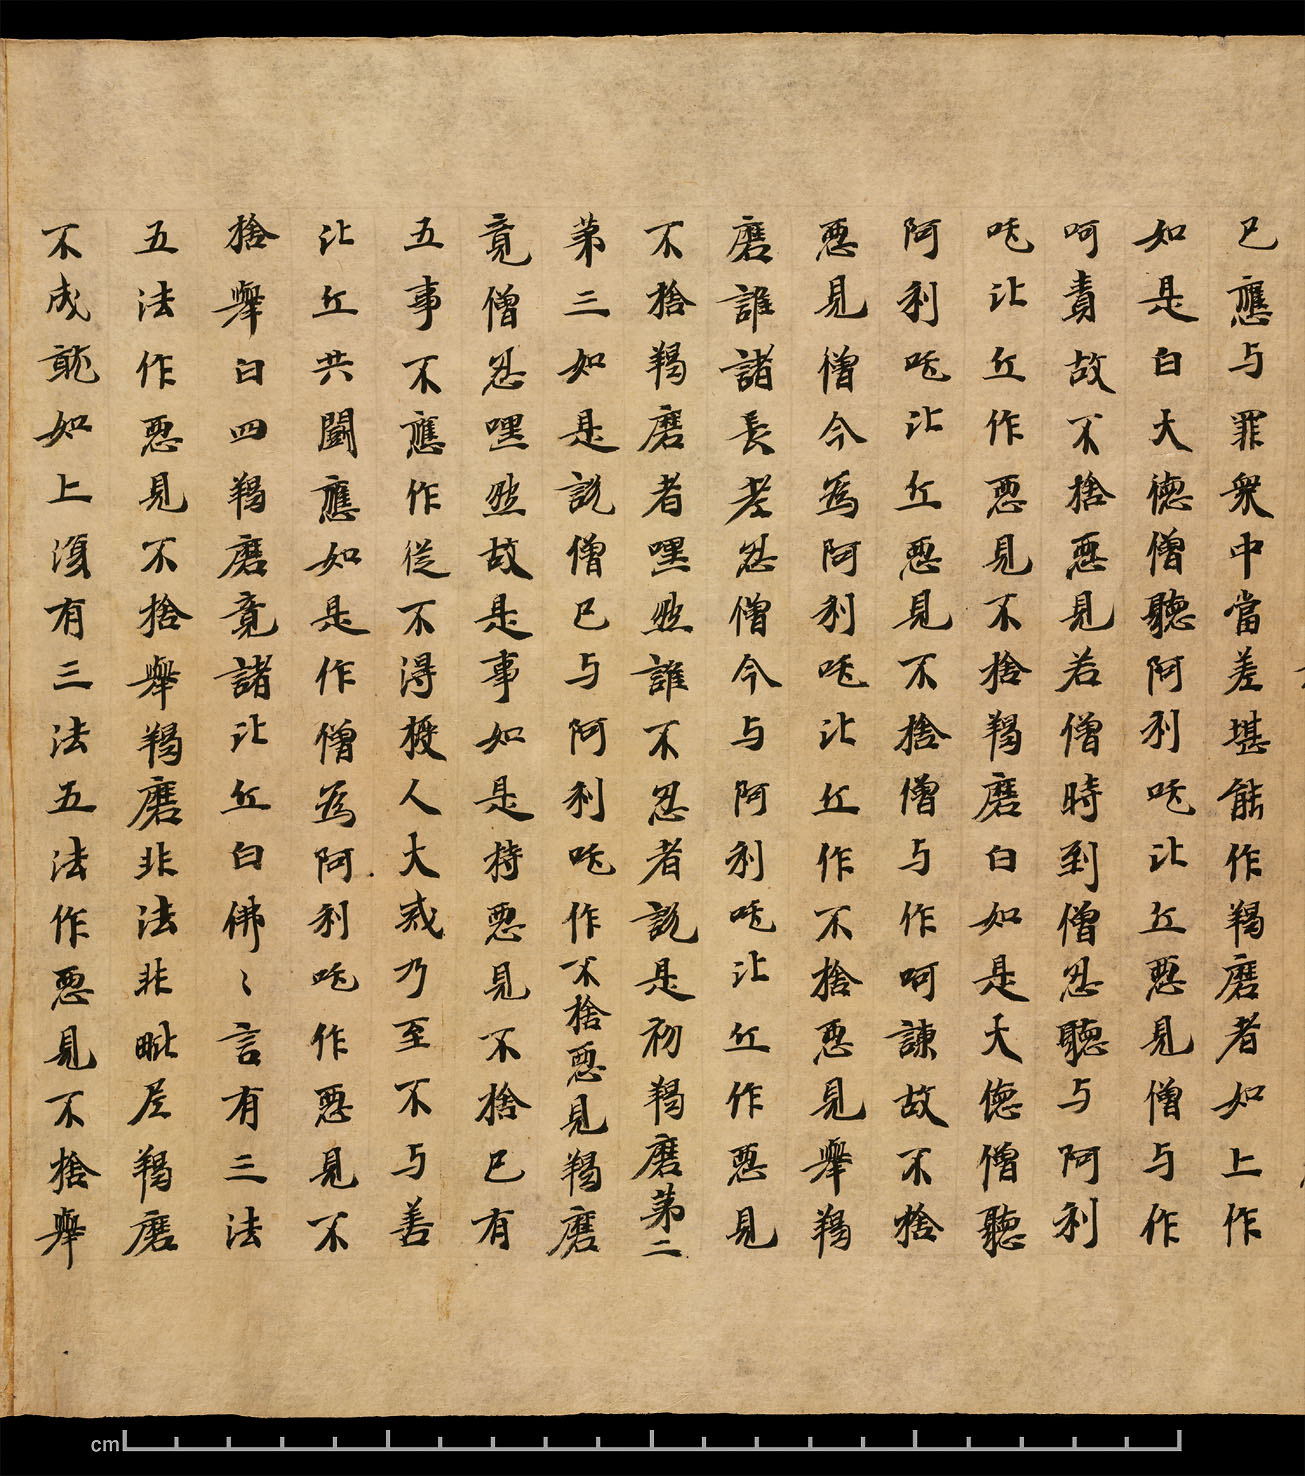 已應与罪衆中當差堪能作羯磨者如上作
如是白大德僧聽阿利吒比丘惡見僧与作
呵責故不捨惡見若僧時到僧忍聽与阿利
吒比丘作惡見不捨羯磨白如是大德僧聽
阿利吒比丘惡見不捨僧与作呵諫故不捨
惡見僧今為阿利吒比丘作不捨惡見舉羯
磨誰諸長老忍僧今与阿利吒比丘作惡見
不捨羯磨者嘿然誰不忍者說是初羯磨第二
第三如是說僧已与阿利吒作不捨惡見羯磨
竟僧忍嘿然故是事如是持惡見不捨已有
五事不應作從不得授人大戒乃至不与善
比丘共鬪應如是作僧為阿利吒作惡見不
捨舉白四羯磨竟諸比丘白佛〻言有三法
五法作惡見不捨舉羯磨非法非毗尼羯磨
不成就如上復有三法五法作惡見不捨舉